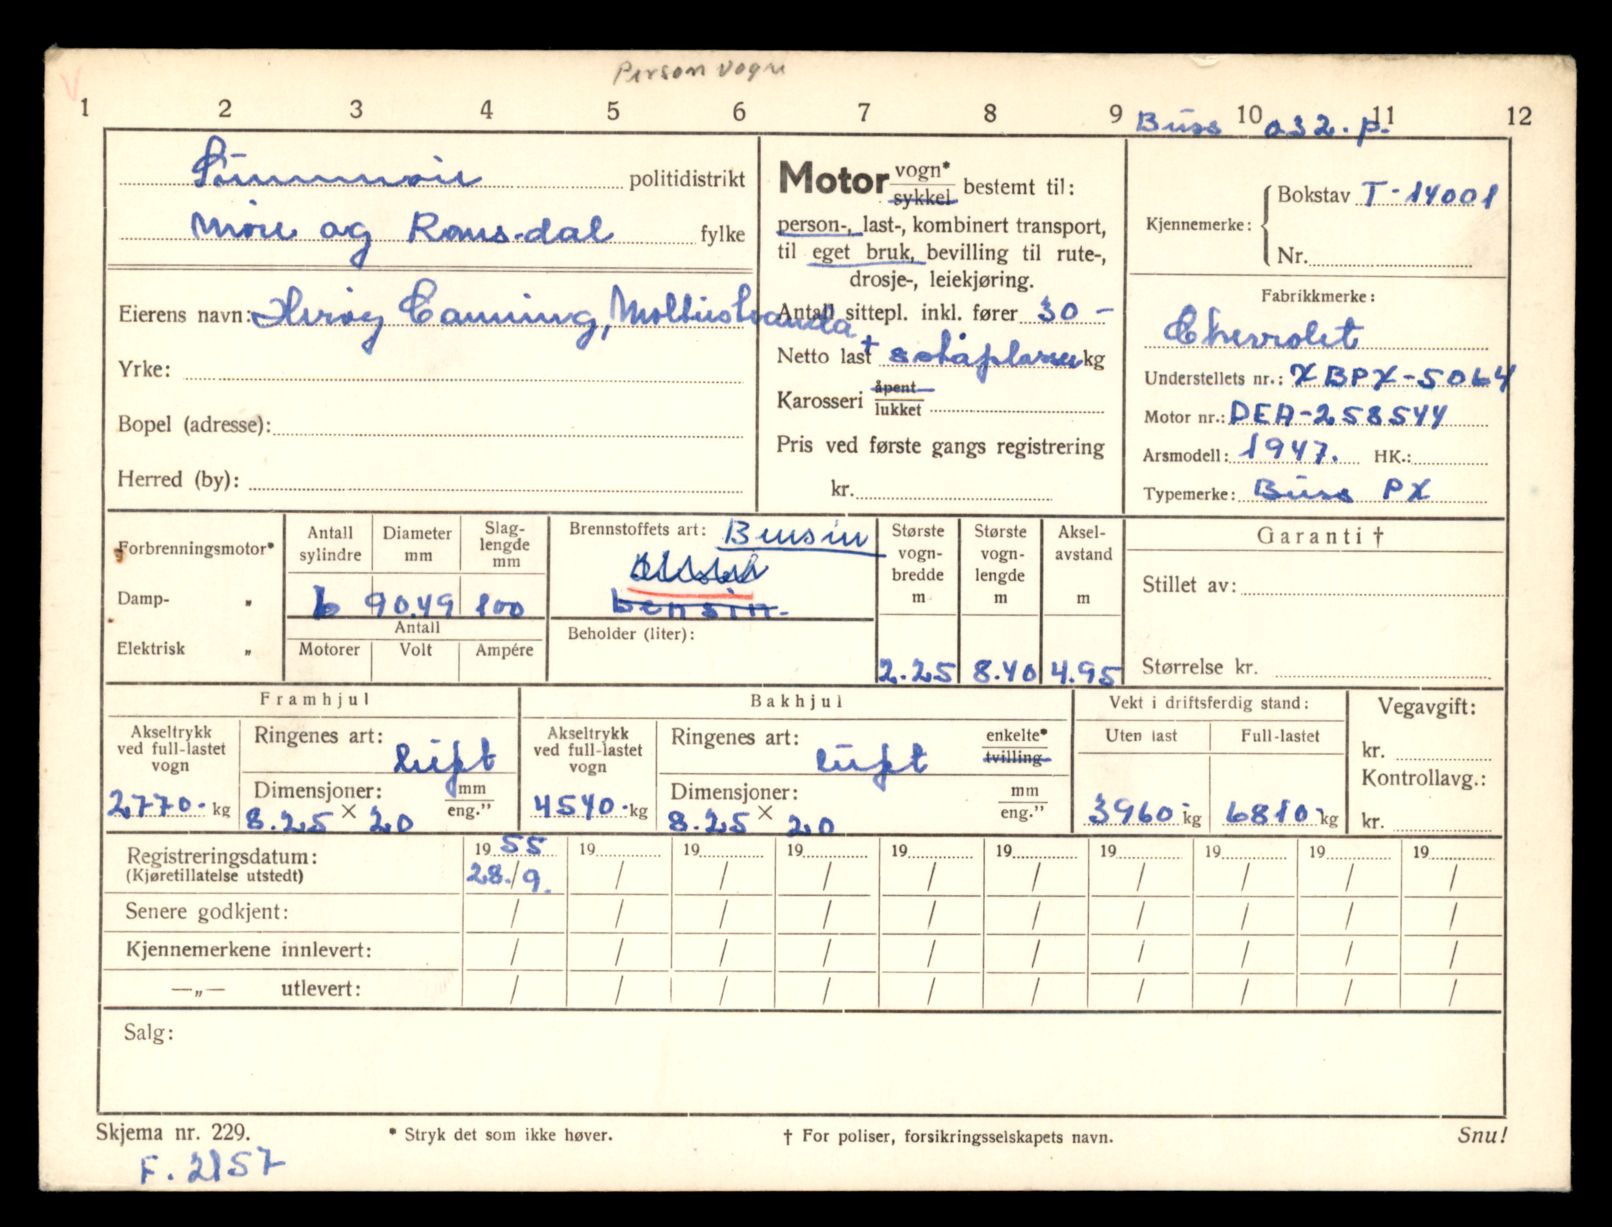 Person vogn
1 2 3 4 5 6 7 8 9 10 11 12
Buss 032.p.
Sunnmøre politidistrikt
Møre og Romsdal fylke
Eierens navn:
Yrke:
Bopel (adresse):
Herred (by):
Motor vogn* sykkel bestemt til:
person-, last-, kombinert transport,
til eget bruk, bevilling til rute-,
drosje-, leiekjøring.
Antall sittepl. inkl. fører 30 -
Netto last + ståplasser kg
Karosseri åpent lukket
Pris ved første gangs registrering
kr.
Kjennemerke: Bokstav T-14001
Nr.
Fabrikkmerke:
Chevrolet
Understellets nr.: XBPX-5064
Motor nr.: DEA-258544
Årsmodell: 1947. HK.:
Typemerke: Buss PX
Forbrenningsmotor*
Damp- „
Elektrisk „
Antall sylindre Diameter mm Slag-lengde mm
6 90.49 100
Antall
Motorer Volt Ampére
Brennstoffets art: Bensin
bensin-
Beholder (liter):
Største vogn-bredde m Største vogn-lengde m Aksel-avstand m
2.25 8.40 4.95
Garanti †
Stillet av:
Størrelse kr.
Framhjul
Akseltrykk ved full-lastet vogn
2770.- kg
Ringenes art: luft
Dimensjoner: mm eng.”
8.25 × 20
Bakhjul
Akseltrykk ved full-lastet vogn
4540.- kg
Ringenes art: luft enkelte* tvilling
Dimensjoner: mm eng.”
8.25 × 20
Vekt i driftsferdig stand:
Uten last Full-lastet
3960 kg 6810 kg
Vegavgift:
kr.
Kontrollavg.:
kr.
Registreringsdatum: 19 55 19 19 19 19 19 19 19 19 19
(Kjøretillatelse utstedt) 28./9. / / / / / / / / /
Senere godkjent: / / / / / / / / / /
Kjennemerkene innlevert: / / / / / / / / / /
—„— utlevert: / / / / / / / / / /
Salg:
Skjema nr. 229. * Stryk det som ikke høver. † For poliser, forsikringsselskapets navn. Snu!
F. 2157